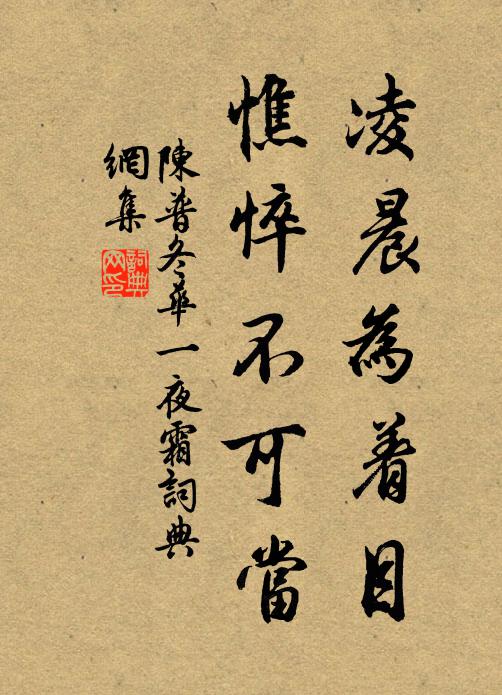 凌晨為着目
憔悴不可當
陳普冬華一夜霜詞典
網集
詞典
网印